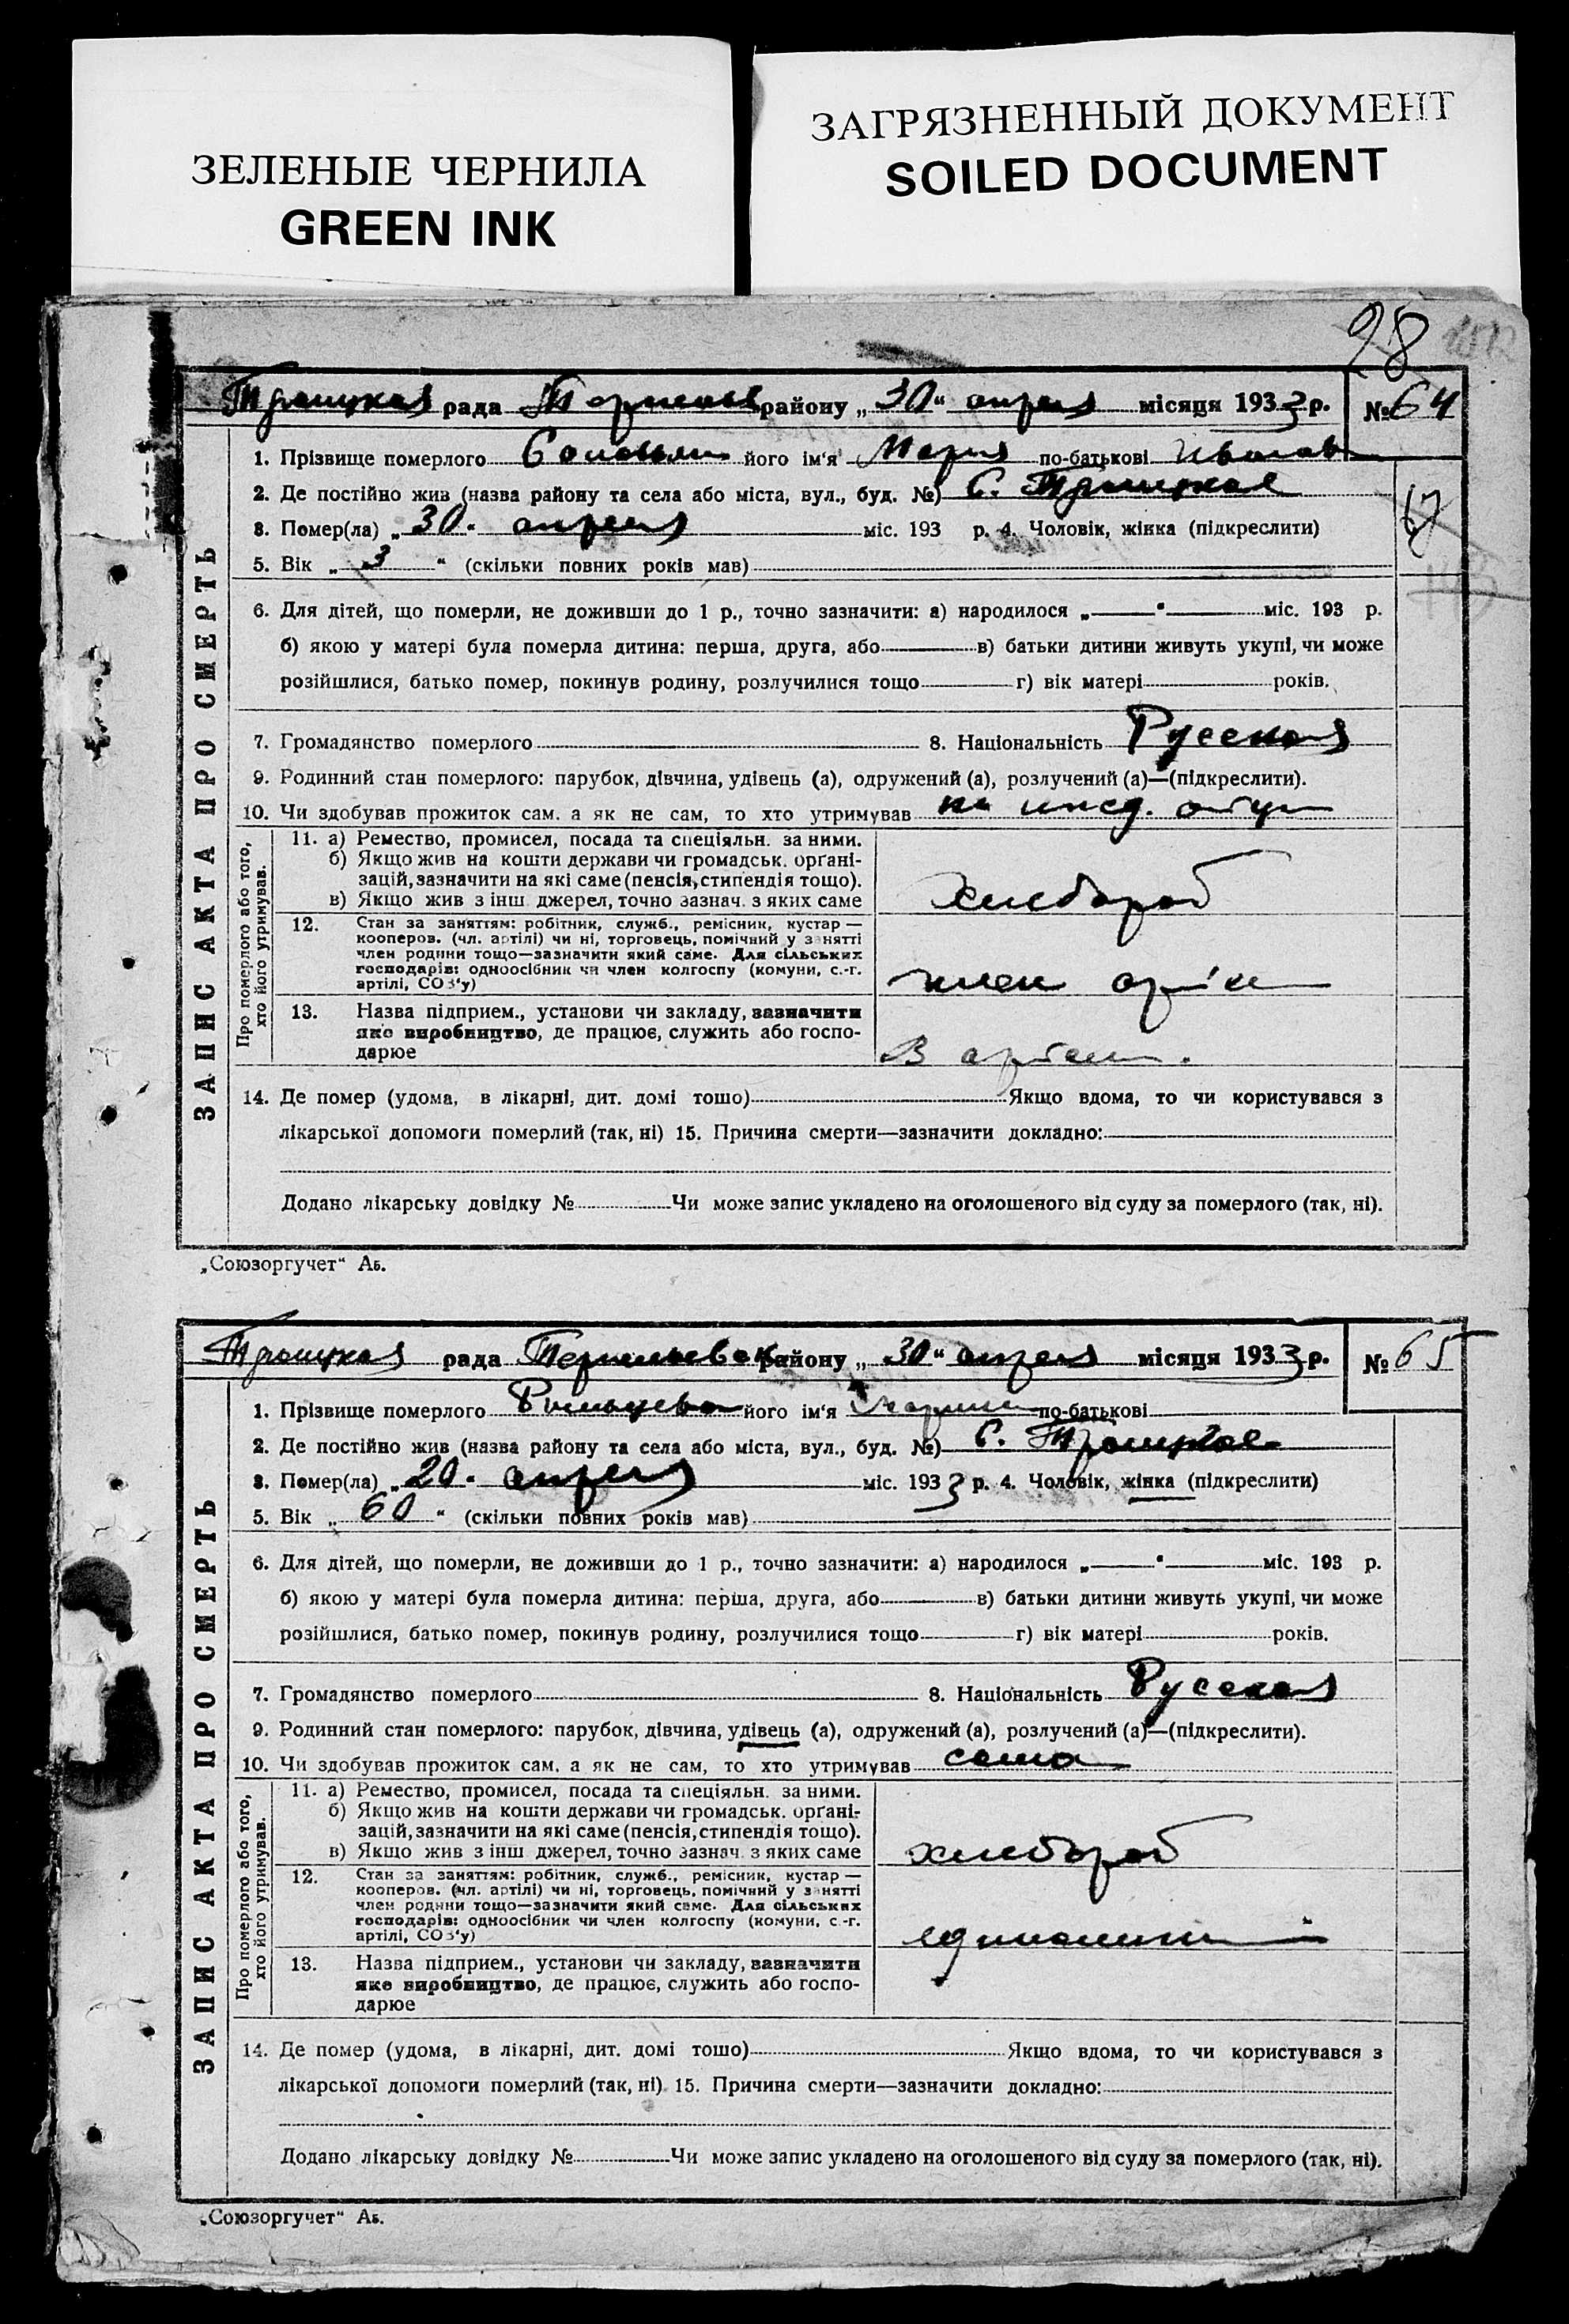 ЗЕЛЕНЫЕ ЧЕРНИЛА
GREEN INK
ЗАГРЯЗНЕННЫЙ ДОКУМЕНТ
SOILED DOCUMENT
98
Троицкая рада району „30“ апреля місяця 1933 р. № 64
1. Прізвище померлого його ім'я Мария по-батькові
2. Де постійно жив (назва району та села або міста, вул., буд. №) С. Троицкое
3. Помер(ла) „30“ апреля міс. 193 р. 4. Чоловік, жінка (підкреслити)
5. Вік „3“ (скільки повних років мав)
6. Для дітей, що померли, не доживши до 1 р., точно зазначити: а) народилося „ “ міс. 193 р.
б) якою у матері була померла дитина: перша, друга, або в) батьки дитини живуть укупі, чи може
розійшлися, батько помер, покинув родину, розлучилися тощо г) вік матері років.
7. Громадянство померлого 8. Національність Русская
9. Родинний стан померлого: парубок, дівчина, удівець (а), одружений (а), розлучений (а)—(підкреслити).
10. Чи здобував прожиток сам, а як не сам, то хто утримував на ижд. отца
11. а) Ремество, промисел, посада та спеціяльн. за ними.
б) Якщо жив на кошти держави чи громадськ. орґані-
зацій, зазначити на які саме (пенсія, стипендія тощо).
в) Якщо жив з інш джерел, точно зазнач. з яких саме
хлебороб
12. Стан за заняттям: робітник, служб., ремісник, кустар —
кооперов. (чл. артілі) чи ні, торговець, помічний у занятті
член родини тощо—зазначити який саме. Для сільських
господарів: одноосібник чи член колгоспу (комуни, с.-г.
артілі, СОЗ'у)
член
13. Назва підприєм., установи чи закладу, зазначити
яке виробництво, де працює, служить або госпо-
дарює
В артели.
Про померлого або того,
хто його утримував.
14. Де помер (удома, в лікарні, дит. домі тошо) Якщо вдома, то чи користувався з
лікарської допомоги померлий (так, ні) 15. Причина смерти—зазначити докладно:
Додано лікарську довідку № Чи може запис укладено на оголошеного від суду за померлого (так, ні).
ЗАПИС АКТА ПРО СМЕРТЬ
„Союзоргучет“ Аб.
Троицкая рада району „30“ апреля місяця 1933 р. № 65
1. Прізвище померлого його ім'я по-батькові
2. Де постійно жив (назва району та села або міста, вул., буд. №) С. Троицкое
3. Помер(ла) „20“ апреля міс. 1933 р. 4. Чоловік, жінка (підкреслити)
5. Вік „60“ (скільки повних років мав)
6. Для дітей, що померли, не доживши до 1 р., точно зазначити: а) народилося „ “ міс. 193 р.
б) якою у матері була померла дитина: перша, друга, або в) батьки дитини живуть укупі, чи може
розійшлися, батько помер, покинув родину, розлучилися тощо г) вік матері років.
7. Громадянство померлого 8. Національність Русская
9. Родинний стан померлого: парубок, дівчина, удівець (а), одружений (а), розлучений (а)—(підкреслити).
10. Чи здобував прожиток сам, а як не сам, то хто утримував сама
11. а) Ремество, промисел, посада та спеціяльн. за ними.
б) Якщо жив на кошти держави чи громадськ. орґані-
зацій, зазначити на які саме (пенсія, стипендія тощо).
в) Якщо жив з інш джерел, точно зазнач. з яких саме
хлебороб
12. Стан за заняттям: робітник, служб., ремісник, кустар —
кооперов. (чл. артілі) чи ні, торговець, помічний у занятті
член родини тощо—зазначити який саме. Для сільських
господарів: одноосібник чи член колгоспу (комуни, с.-г.
артілі, СОЗ'у)
13. Назва підприєм., установи чи закладу, зазначити
яке виробництво, де працює, служить або госпо-
дарює
Про померлого або того,
хто його утримував.
14. Де помер (удома, в лікарні, дит. домі тошо) Якщо вдома, то чи користувався з
лікарської допомоги померлий (так, ні) 15. Причина смерти—зазначити докладно:
Додано лікарську довідку № Чи може запис укладено на оголошеного від суду за померлого (так, ні).
ЗАПИС АКТА ПРО СМЕРТЬ
„Союзоргучет“ Аб.